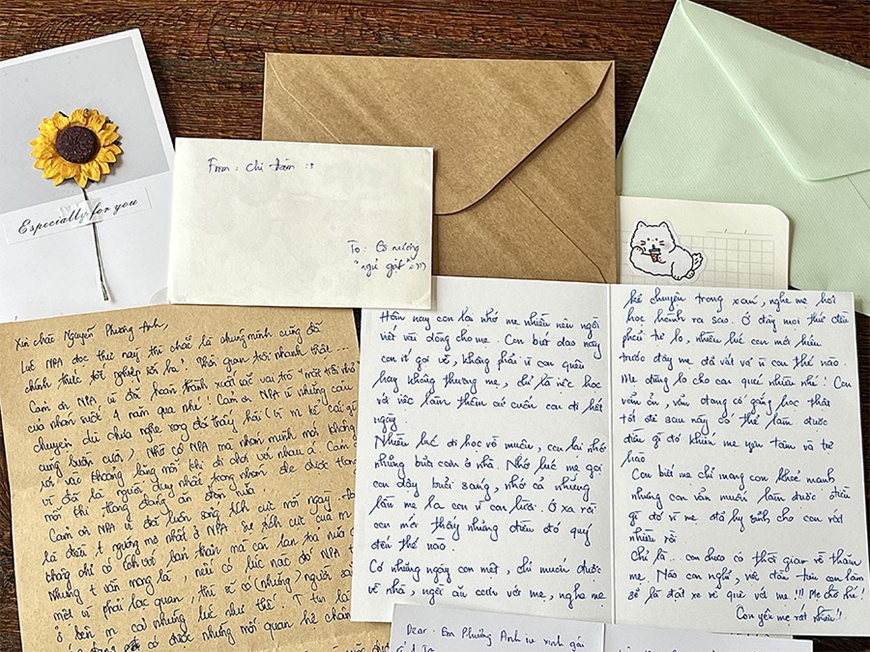 Especially for you
From: Chi Đàm :3
To: Cô nương
"ngủ gật" =)))
Xin chào Nguyễn Phương Anh,
Lúc NPA đọc thư này thì chắc là chúng mình cũng đã
chính thức tốt nghiệp rồi ha! Thời gian trôi nhanh thật...
Cảm ơn NPA vì đã hoàn thành xuất sắc vai trò "mặt trời nhỏ"
của nhóm suốt 4 năm qua nhé! Cảm ơn NPA vì những câu
chuyện dù chưa nghe xong đã thấy hài (vì m kể cái gì
cũng buồn cười), Nhờ có NPA mà nhóm mình mới không
rơi vào khoảng lặng mỗi khi đi chơi với nhau á. Cảm
vì đã là người duy nhất trong nhóm
mỗi khi
Cảm ơn NPA vì đã luôn sống tích cực mỗi ngày.
là điều t ngưỡng mộ nhất ở NPA. Sự tích cực của m
chẳng chỉ có ích với bản thân mà còn lan toả nữa
Nhưng t vẫn mong là, nếu có lúc nào đó NPA
mệt vì phải lạc quan, thì sẽ có (những) người
ở bên m cả những lúc như thế. T tin là
có được những mối quan hệ chân
Hôm nay con lại nhớ mẹ nhiều nên ngồi
viết vài dòng cho mẹ. Con biết dạo này
con ít gọi về, không phải vì con quên
hay không thương mẹ, chỉ là việc học
với việc làm thêm cứ cuốn con đi hết
ngày.
Nhiều lúc đi học về muộn, con lại nhớ
những bữa cơm ở nhà. Nhớ lúc mẹ gọi
con dậy buổi sáng, nhớ cả những
lần mẹ la con vì con lười. Ở xa rồi
con mới thấy những điều đó quý
đến thế nào.
Có những ngày con mệt, chỉ muốn được
về nhà, ngồi ăn cơm với mẹ, nghe mẹ
kể chuyện trong xóm, nghe mẹ hỏi
học hành ra sao. Ở đây mọi thứ đều
phải tự lo, nhiều lúc con mới hiểu
trước đây mẹ đã vất vả vì con thế nào.
Mẹ đừng lo cho con quá nhiều nhé! Con
vẫn ổn, vẫn đang cố gắng học thật
tốt để sau này có thể làm được
điều gì đó khiến mẹ yên tâm và tự
hào
Con biết mẹ chỉ mong con khoẻ mạnh
nhưng con vẫn muốn làm được điều
gì đó vì mẹ đã hy sinh cho con rất
nhiều rồi
Chỉ là.. con chưa có thời gian về thăm
mẹ. Nào con nghỉ, việc đầu tiên con làm
sẽ là đặt xe về quê với mẹ!!! Mẹ chờ hé!
Con yêu mẹ rất nhiều!!
Dear. Em Phương Anh iu xinh gái